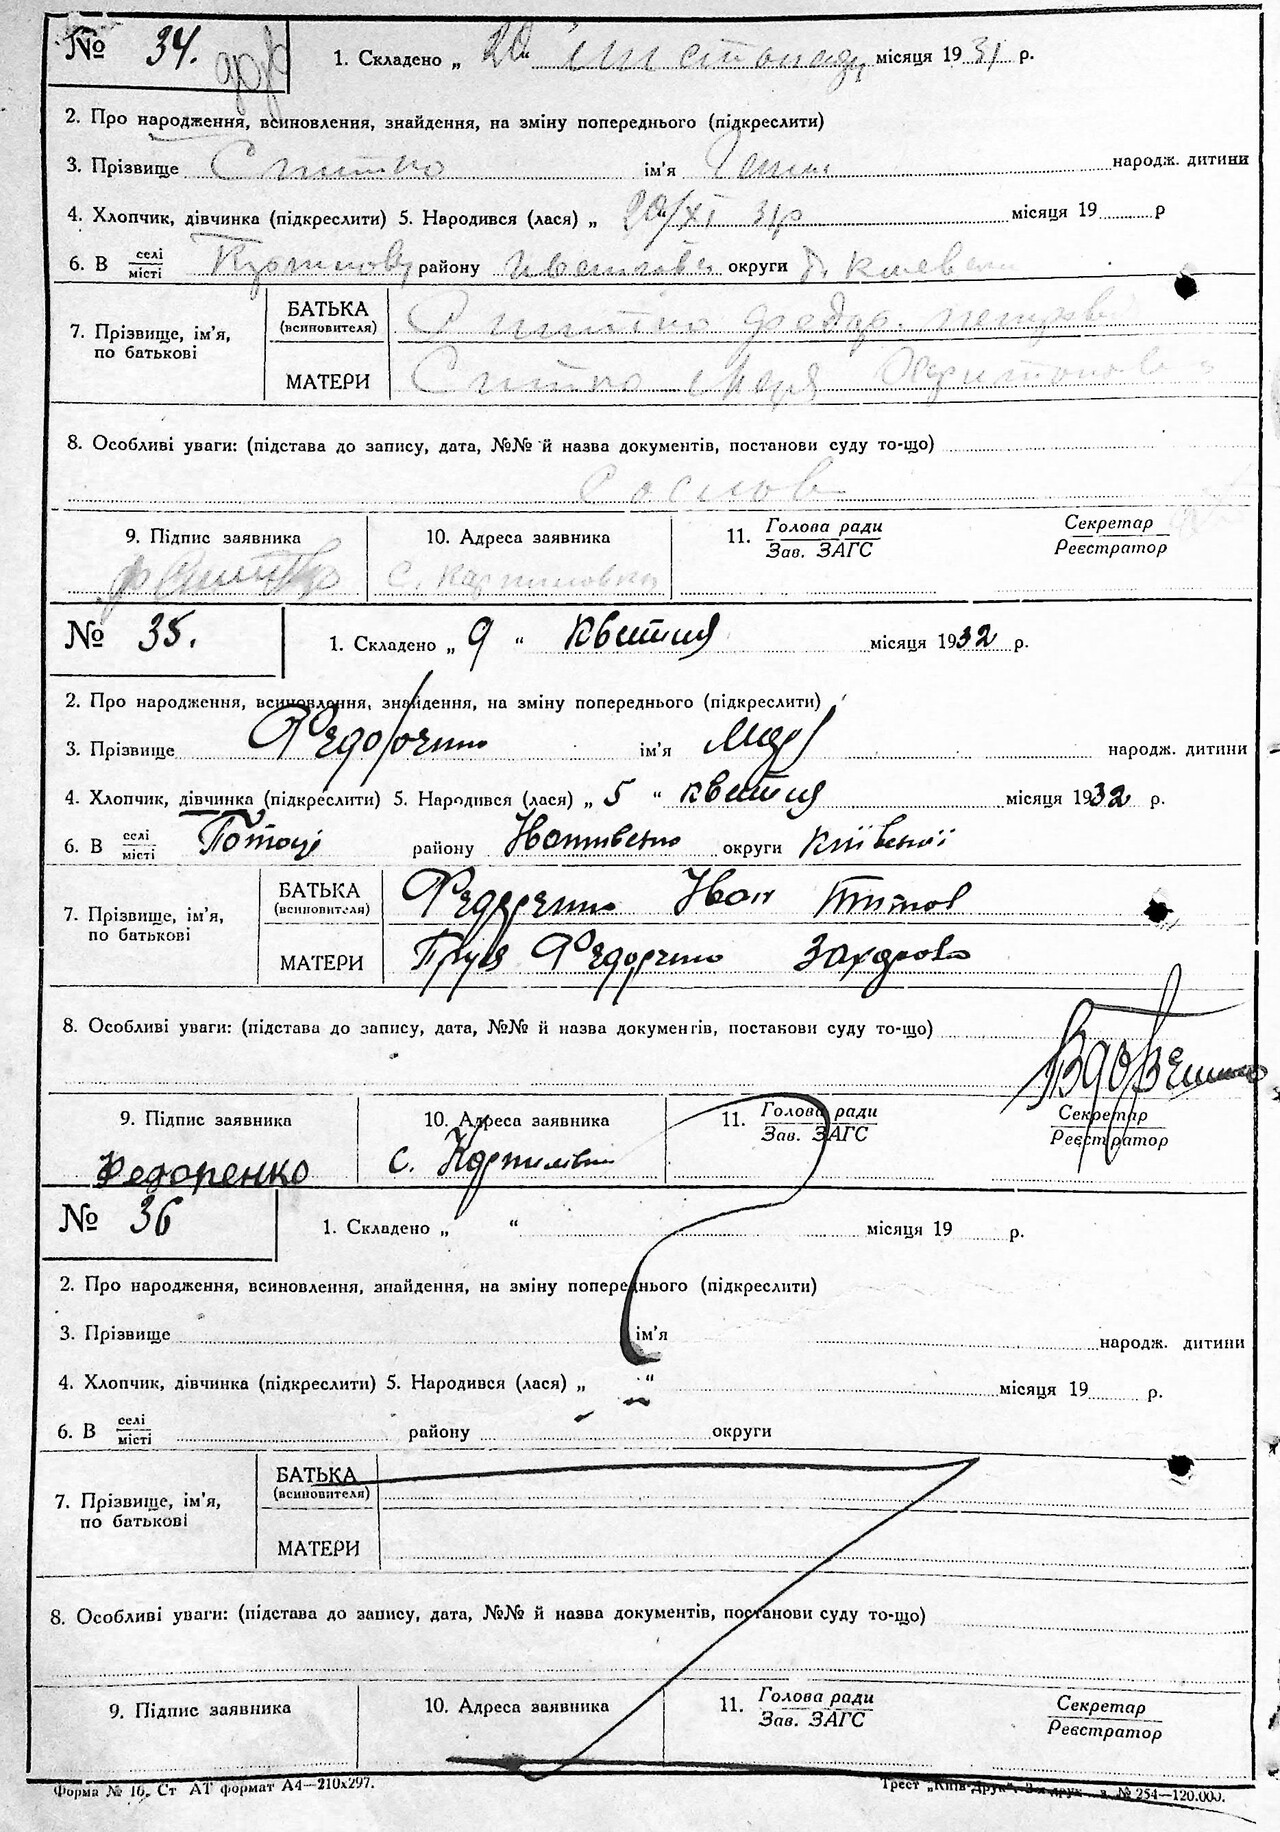 № 34. 1. Складено „ 20 “ листопада місяця 1931 р.
2. Про народження, всиновлення, знайдення, на зміну попереднього (підкреслити)
3. Прізвище Ситко ім'я народж. дитини
4. Хлопчик, дівчинка (підкреслити) 5. Народився (лася) „ 20/XI 31р місяця 19 р
6. В селі/місті району округи
7. Прізвище, ім'я, по батькові
БАТЬКА (всиновителя) Ситко Федор.
МАТЕРИ Ситко Харитонов
8. Особливі уваги: (підстава до запису, дата, №№ й назва документів, постанови суду то-що)
9. Підпис заявника 10. Адреса заявника 11. Голова ради/Зав. ЗАГС Секретар/Реєстратор
с. Карпиловка
№ 35. 1. Складено „ 9 “ квітня місяця 1932 р.
2. Про народження, всиновлення, знайдення, на зміну попереднього (підкреслити)
3. Прізвище ім'я народж. дитини
4. Хлопчик, дівчинка (підкреслити) 5. Народився (лася) „ 5 “ квітня місяця 1932 р.
6. В селі/місті району округи Київської
7. Прізвище, ім'я, по батькові
БАТЬКА (всиновителя) Федоренко Іван Титов
МАТЕРИ Захарова
8. Особливі уваги: (підстава до запису, дата, №№ й назва документів, постанови суду то-що)
9. Підпис заявника 10. Адреса заявника 11. Голова ради/Зав. ЗАГС Секретар/Реєстратор
Федоренко с. Карпилівка
№ 36 1. Складено „ “ місяця 19 р.
2. Про народження, всиновлення, знайдення, на зміну попереднього (підкреслити)
3. Прізвище ім'я народж. дитини
4. Хлопчик, дівчинка (підкреслити) 5. Народився (лася) „ “ місяця 19 р.
6. В селі/місті району округи
7. Прізвище, ім'я, по батькові
БАТЬКА (всиновителя)
МАТЕРИ
8. Особливі уваги: (підстава до запису, дата, №№ й назва документів, постанови суду то-що)
9. Підпис заявника 10. Адреса заявника 11. Голова ради/Зав. ЗАГС Секретар/Реєстратор
Форма № 16. Ст АТ формат А4—210х297. Трест „Київ-Друк“. № 254—120.000.